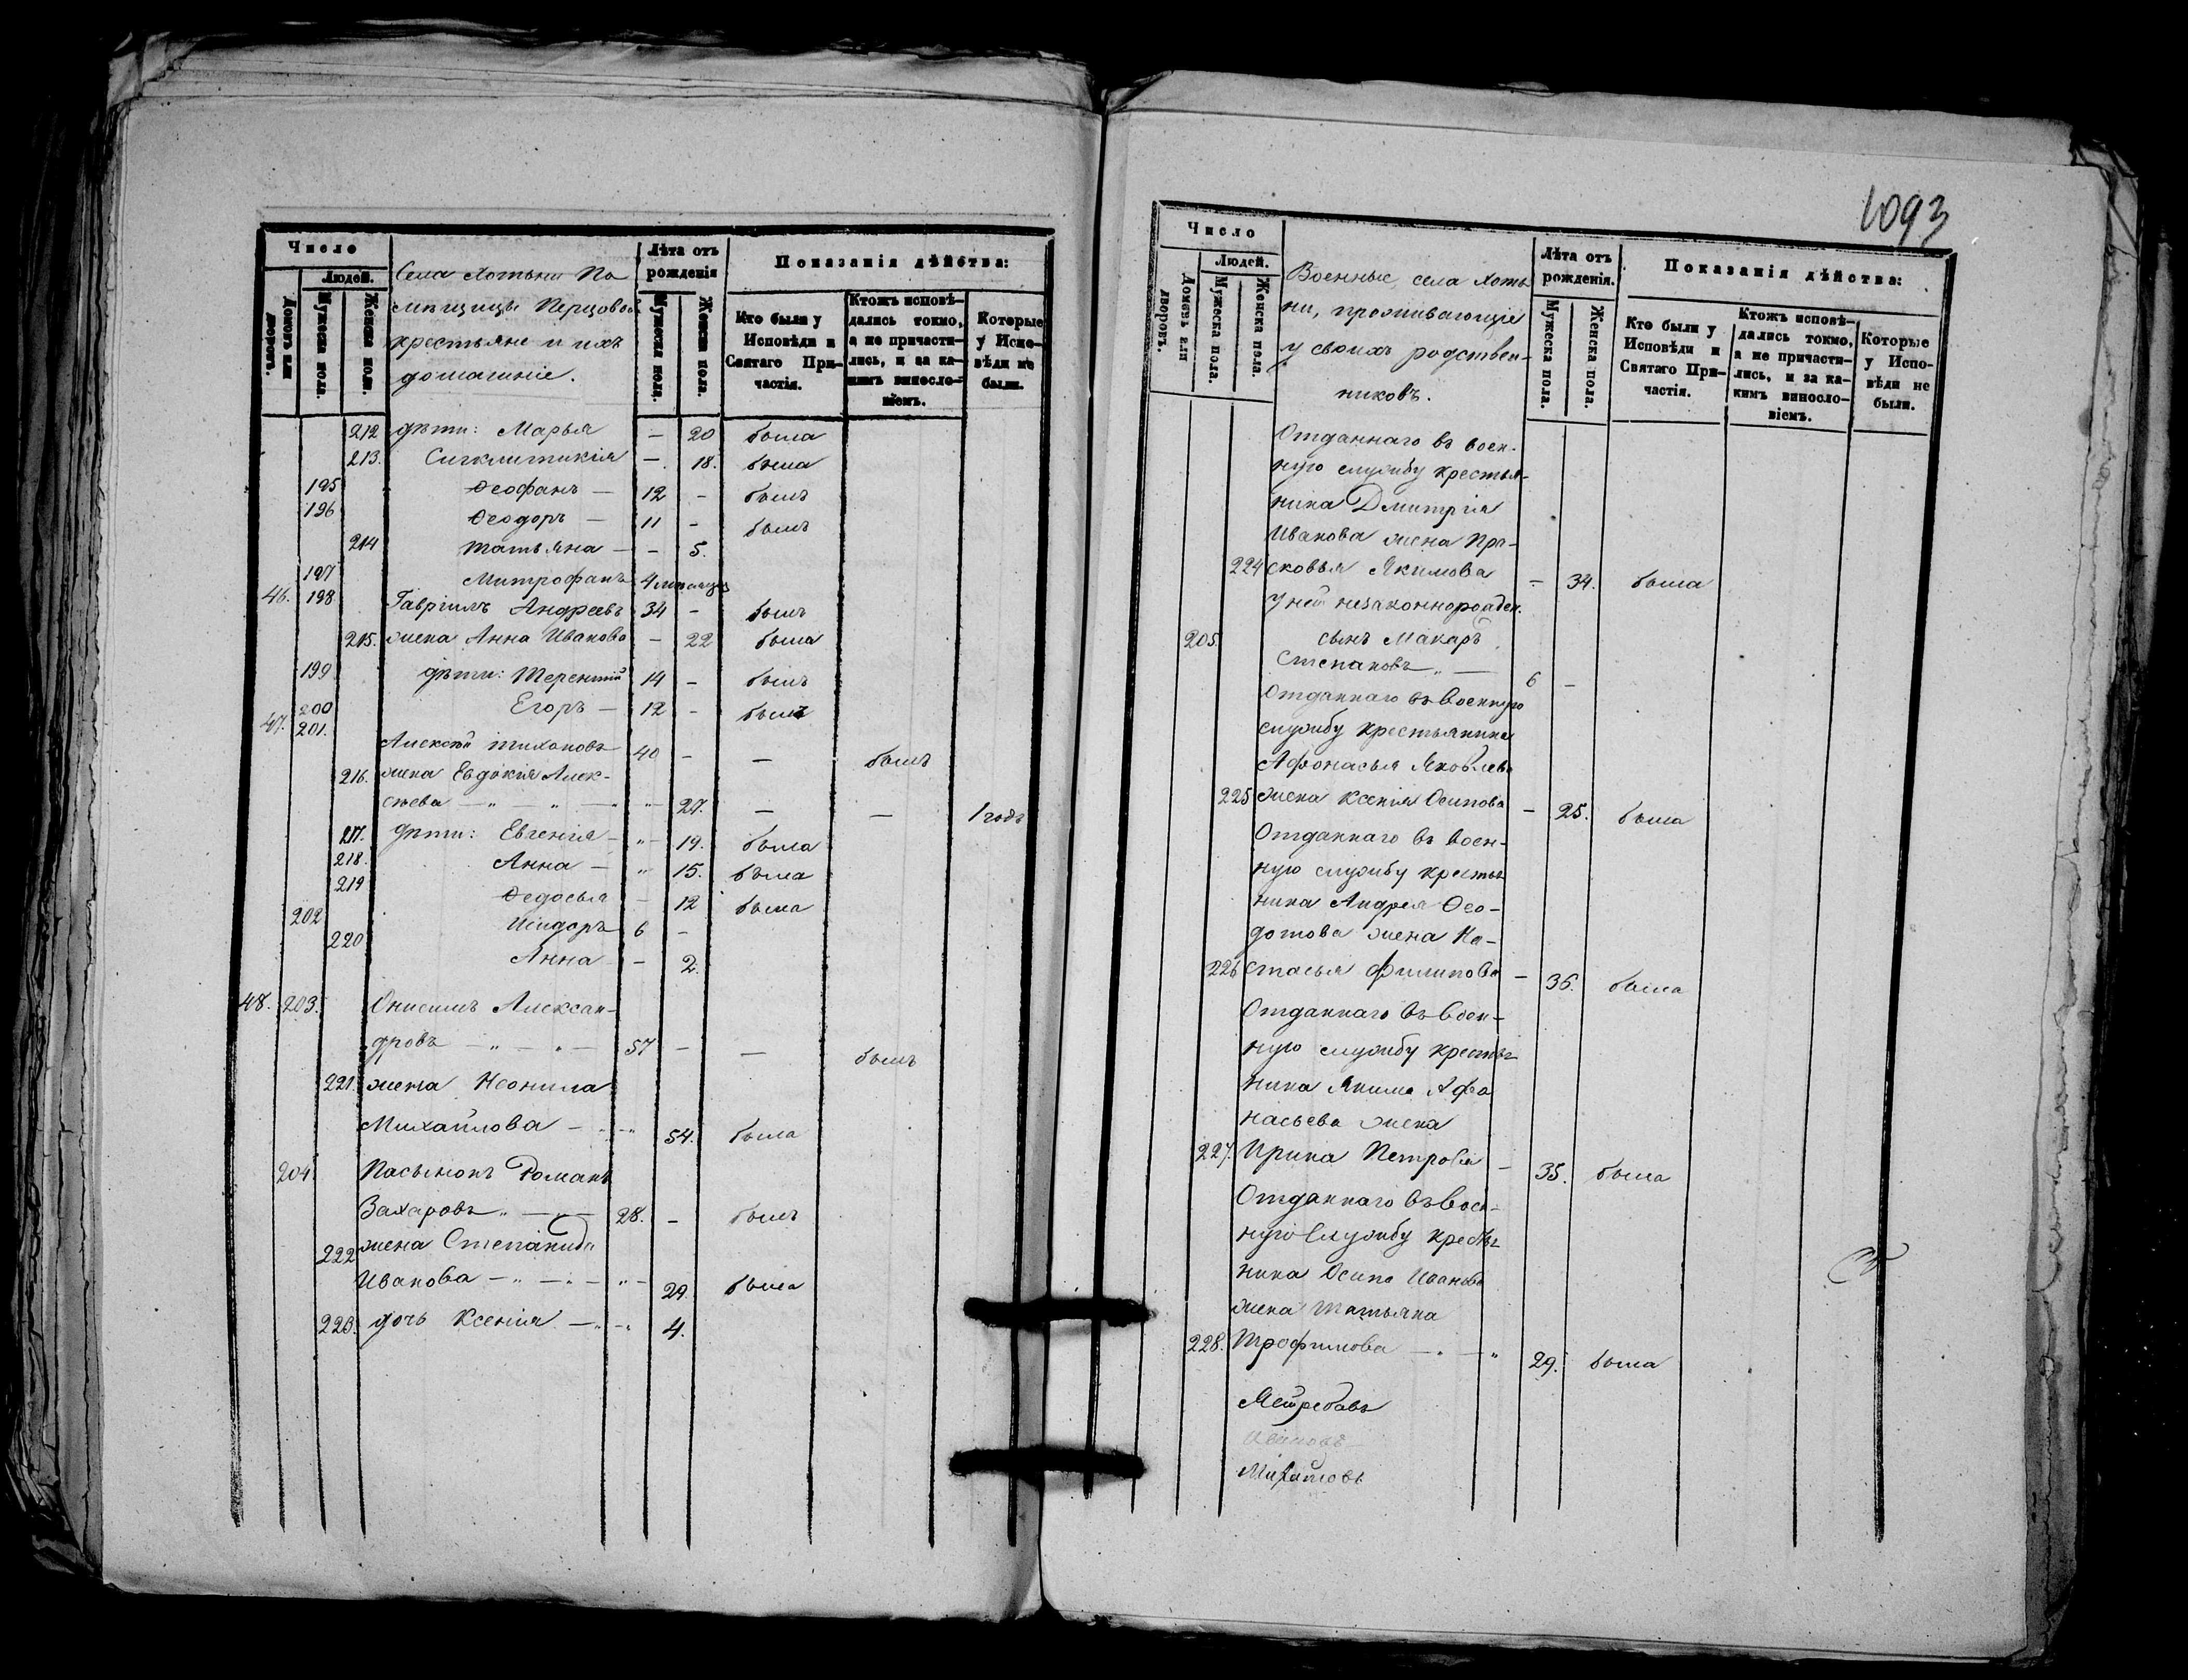 Число
Людей.
Домовъ или дворовъ.
Мужеска пола.
Женска пола.
Села Хотыни По
мѣщицы Перцовой
крестьяне и ихъ
домашніе.
Лѣта отъ
рожденія
Мужеска пола.
Женска пола.
Показанія дѣйства:
Кто были у
Исповѣди и
Святаго При-
частія.
Ктожъ исповѣ-
дались токмо,
а не причасти-
лись, и за ка-
кимъ винosло-
віемъ.
Которые
у Испо-
вѣди не
были.
212 дѣти: Марья — 20 была
213. Сигклитикія — 18. была
195 Ѳеофанъ — 12 - былъ
196 Ѳеодоръ — 11 - былъ
214 Татьяна — - 5.
197 Митрофанъ 4 мѣсяца
46. 198 Гавріилъ Андреевъ 34 - былъ
215. жена Анна Иванова - 22 была
199 дѣти: Терентій 14 - былъ
200 Егоръ — 12 - былъ
47. 201. Алексѣй Тихоновъ 40 - — былъ
216. жена Евдокія Алек-
сѣева — " — " — " - 27. — — 1 годъ
217. дѣти: Евгенія — " - 19. была
218. Анна — " 15. была
219 Ѳедосья - 12 была
202 Исидоръ 6 -
220 Анна - 2.
48. 203. Онисимъ Алексан-
дровъ — " — " — 57 - — былъ
221. жена Неонила
Михайлова — " - " 54. была
204. Пасынокъ Романъ
Захаровъ " — " — 28. - былъ
222 жена Степанида
Иванова — " — " — " - 29. была
223. дочь Ксенія — " - " 4.
1093
Число
Людей.
Домовъ или дворовъ.
Мужеска пола.
Женска пола.
Военные, села Хоты
ни, проживающіе
у своихъ родствен-
никовъ.
Лѣта отъ
рожденія.
Мужеска пола.
Женска пола.
Показанія дѣйства:
Кто были у
Исповѣди и
Святаго При-
частія.
Ктожъ исповѣ-
дались токмо,
а не причасти-
лись, и за ка-
кимъ винosло-
віемъ.
Которые
у Испо-
вѣди не
были.
Отданнаго въ воен-
ную службу крестья-
нина Дмитрія
Иванова жена Пра-
224 сковья Якимова - 34. была
У ней незаконнорожден.
205. сынъ Макаръ
Степановъ " — 6 -
Отданнаго въ военную
службу крестьянина
Афонасья Яковлева
225 жена Ксенія Осипова - 25. была
Отданнаго въ воен-
ную службу крестья
нина Андрея Ѳео-
дотова жена На-
226 стасья Филипова - 36. была
Отданнаго въ воен-
ную службу крестья
нина Якима Афа
насьева жена
227. Ирина Петрова - 35. была
Отданнаго въ воен-
ную службу крестья
нина Осипа Иванова
жена Татьяна
228. Трофимова — " — " 29. была